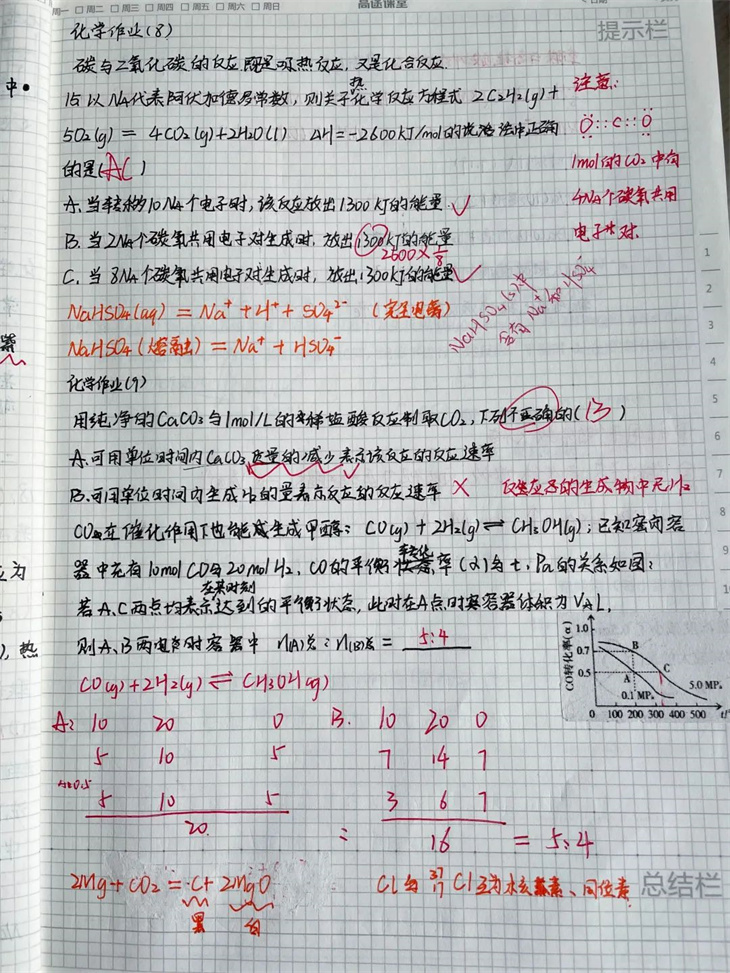 周一 周二 周三 周四 周五 周六 周日 高途课堂
提示栏
化学作业(8)
碳与二氧化碳的反应既是吸热反应,又是化合反应
中·
15 以NA代表阿伏加德罗常数,则关于热化学反应方程式 2C2H2(g)+
5O2(g) = 4CO2(g)+2H2O(l) ΔH=-2600KJ/mol的说法中正确
的是(AC)
注意:
O::C::O
1mol的CO2中有
4NA个碳氧共用
电子对.
A.当转移10NA个电子时,该反应放出1300KJ的能量 ✓
B.当2NA个碳氧共用电子对生成时,放出1300KJ的能量
2600×1/8
C.当8NA个碳氧共用电子对生成时,放出1300KJ的能量 ✓
NaHSO4(aq) = Na⁺+H⁺+SO4²⁻ (完全电离)
NaHSO4(熔融) = Na⁺+HSO4⁻
NaHSO4(s)中
含有Na⁺和HSO4⁻
化学作业(9)
用纯净的CaCO3与1mol/L的稀盐酸反应制取CO2,下列不正确的(B)
A.可用单位时间内CaCO3质量的减少表示该反应的反应速率
B.可用单位时间内生成H2的量表示反应的反应速率 ×
反应的生成物中无H2
CO在催化作用下也能生成甲醇:CO(g)+2H2(g)⇌CH3OH(g);已知密闭容
器中充有10molCO与20molH2,CO的平衡转化率(α)与t,Pa的关系如图:
若A、C两点均表示在某时刻达到的平衡状态,此时在A点时容器体积为VAL,
则A、B两点时容器中 n(A)总:n(B)总= 5:4
CO转化率(α)
1.0
0.7
0.5
B
A
C
0.1 MPa
5.0 MPa
0 100 200 300 400 500 t/
CO(g)+2H2(g)⇌CH3OH(g)
A: 10 20 0 B. 10 20 0
5 10 5 7 14 7
α=0.5
5 10 5 3 6 7
20 : 16 = 5:4
2Mg+CO2=C+2MgO
黑 白
Cl与³⁷₁₇Cl互为核素、同位素
总结栏
应为
),热
1
2
3
4
5
6
7
8
9